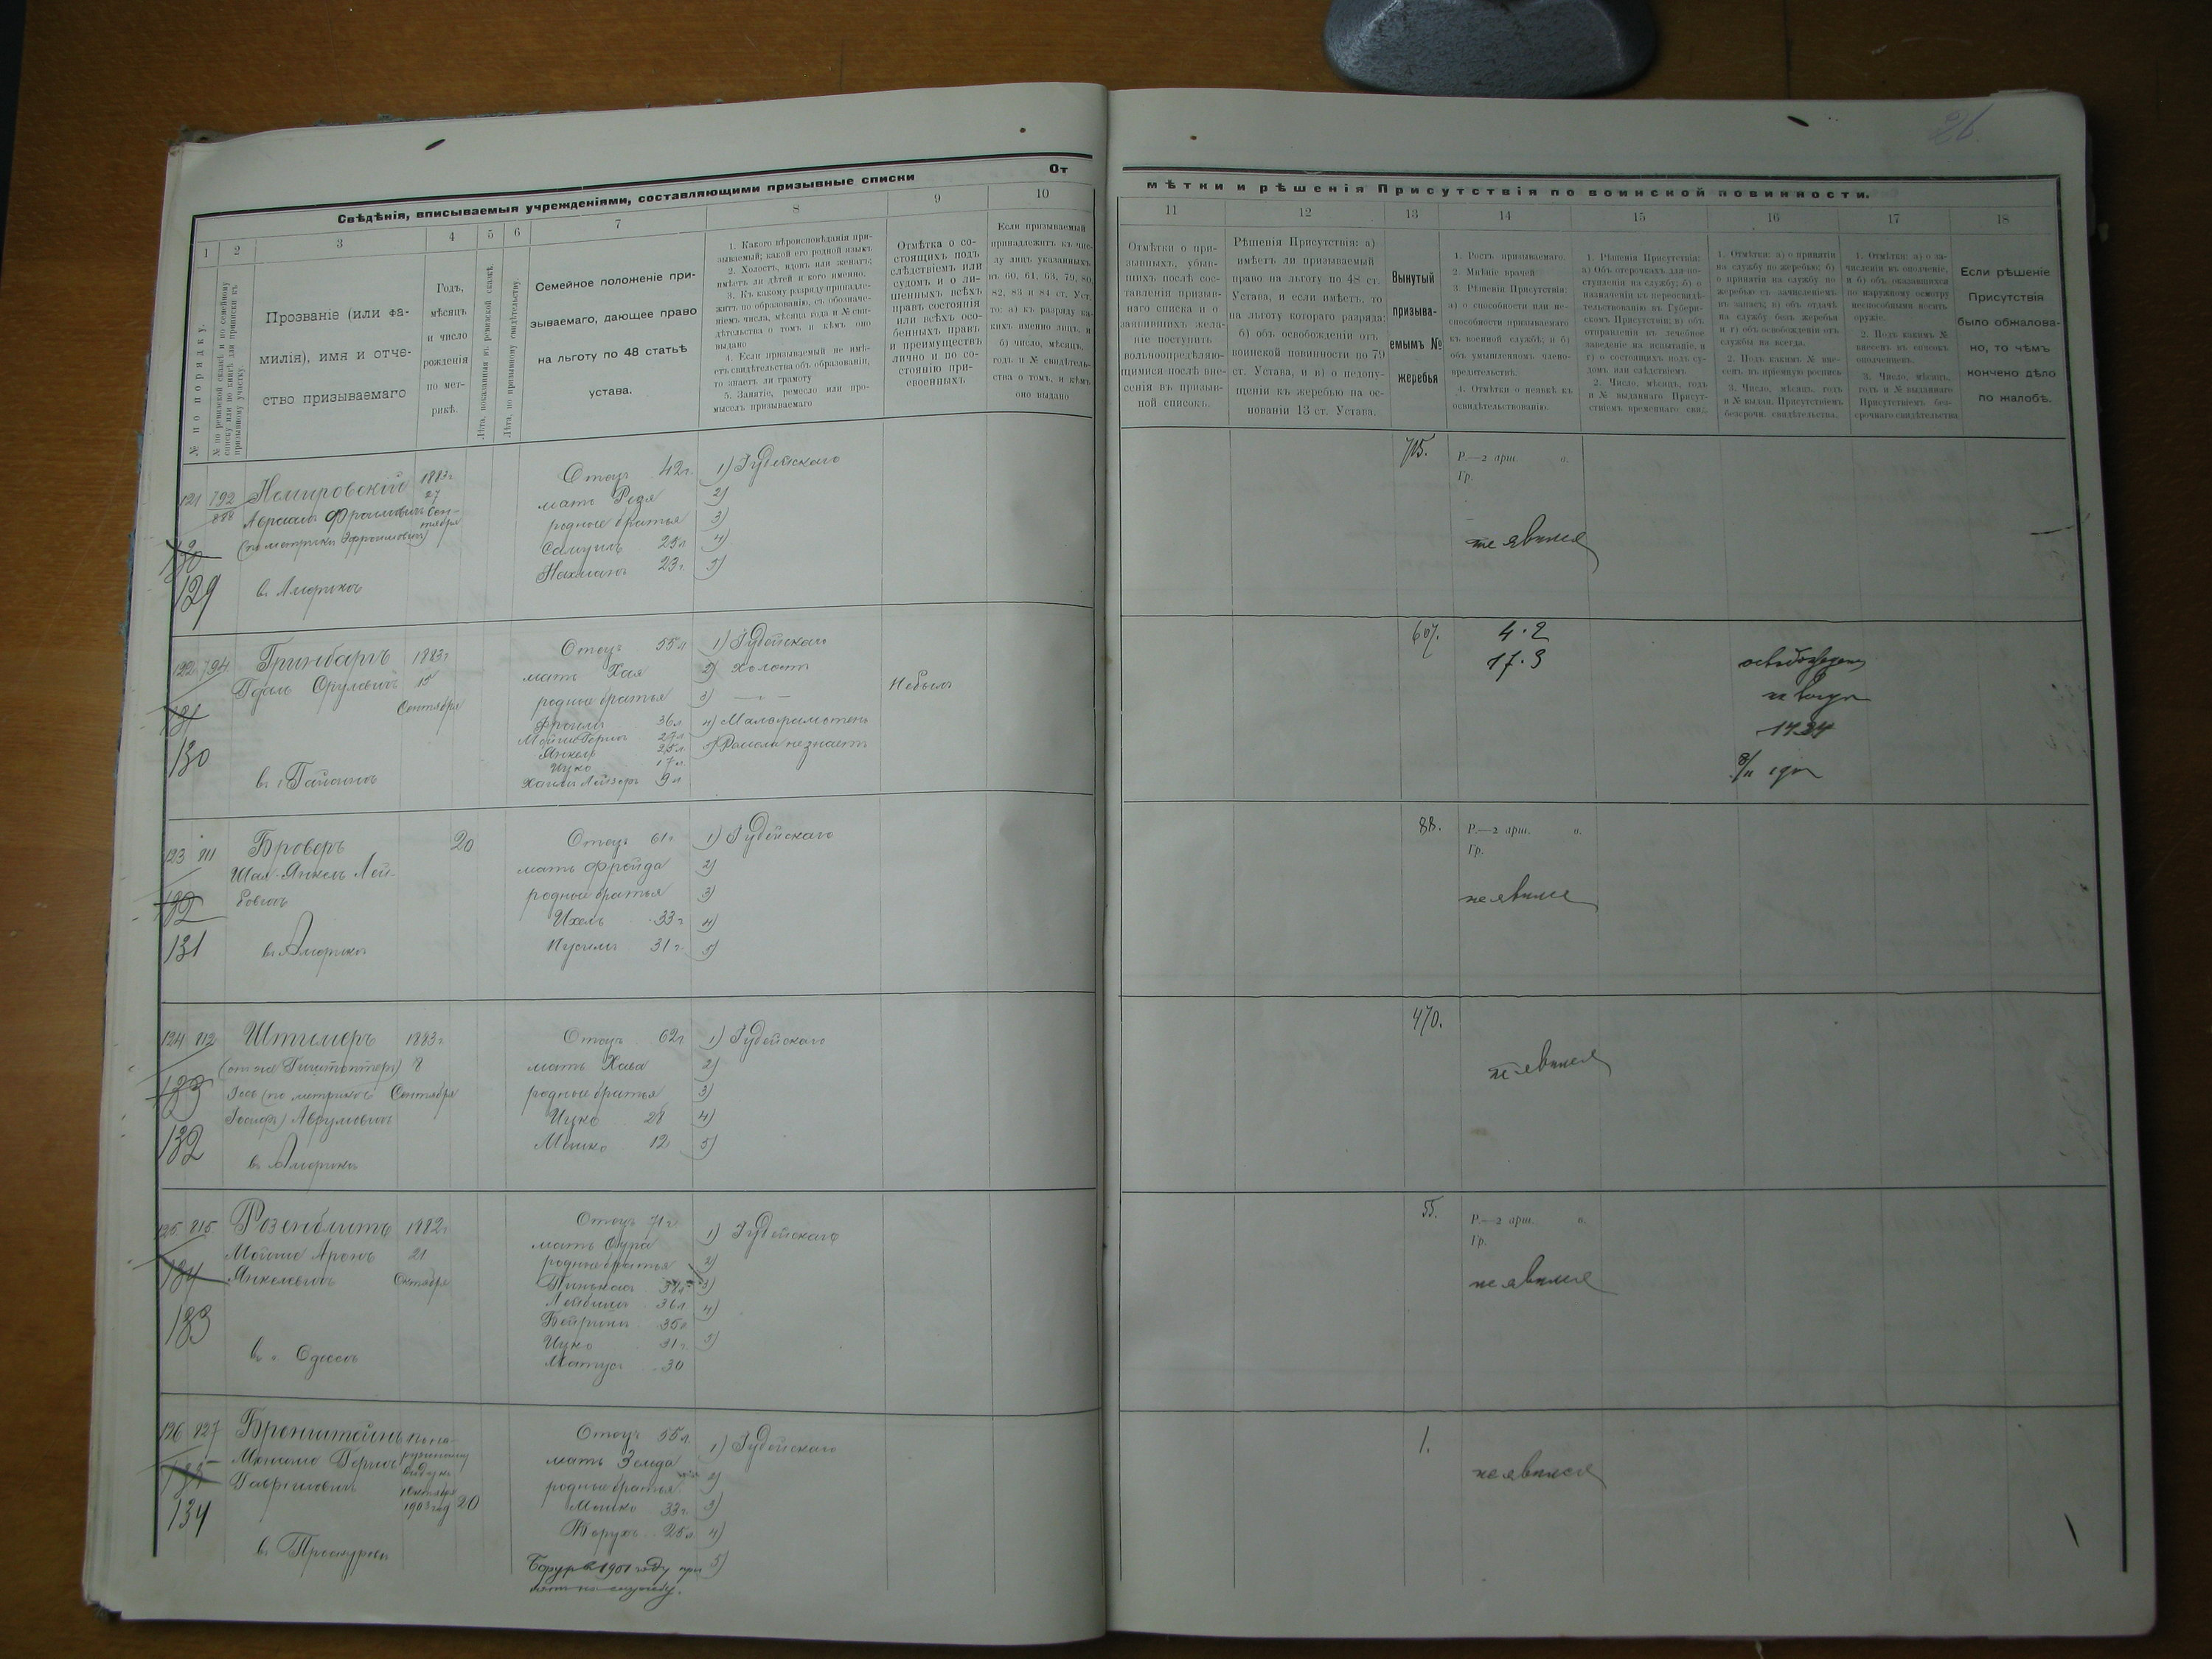 26.
Свѣдѣнія, вписываемыя учрежденіями, составляющими призывные списки
От
мѣтки и рѣшенія Присутствія по воинской повинности.
1 2 3 4 5 6 7 8 9 10
11 12 13 14 15 16 17 18
№ по порядку.
№ по ревизской сказкѣ и по семейному
списку или по книгѣ для приписки къ
призывному участку.
Прозваніе (или фа-
милія), имя и отче-
ство призываемаго
Годъ,
мѣсяцъ
и число
рожденія
по мет-
рикѣ.
Лѣта, показанныя въ ревизской сказкѣ.
Лѣта, по призывному свидѣтельству.
Семейное положеніе при-
зываемаго, дающее право
на льготу по 48 статьѣ
устава.
1. Какого вѣроисповѣданія при-
зываемый; какой его родной языкъ
2. Холостъ, вдовъ или женатъ;
имѣетъ ли дѣтей и кого именно.
3. Къ какому разряду принадле-
житъ по образованію, съ обозначе-
ніемъ числа, мѣсяца года и № сви-
дѣтельства о томъ и кѣмъ оно
выдано
4. Если призываемый не имѣ-
етъ свидѣтельства объ образованіи,
то знаетъ ли грамоту
5. Занятіе, ремесло или про-
мыселъ призываемаго
Отмѣтка о со-
стоящихъ подъ
слѣдствіемъ или
судомъ и о ли-
шенныхъ всѣхъ
правъ состоянія
или всѣхъ осо-
бенныхъ правъ
и преимуществъ
лично и по со-
стоянію при-
своенныхъ.
Если призываемый
принадлежитъ къ чис-
лу лицъ указанныхъ
въ 60, 61, 63, 79, 80,
82, 83 и 84 ст. Уст.
то: а) къ разряду ка-
кихъ именно лицъ, и
б) число, мѣсяцъ,
годъ и № свидѣтель-
ства о томъ, и кѣмъ
оно выдано
Отмѣтки о при-
зывныхъ, убыв-
шихъ послѣ сос-
тавленія призыв-
наго списка и о
заявившихъ жела-
ніе поступить
вольноопредѣляю-
щимися послѣ вне-
сенія въ призыв-
ной списокъ.
Рѣшенія Присутствія: а)
имѣетъ ли призываемый
право на льготу по 48 ст.
Устава, и если имѣетъ, то
на льготу котораго разряда;
б) объ освобожденіи отъ
воинской повинности по 79
ст. Устава, и в) о недопу-
щеніи къ жеребью на ос-
нованіи 13 ст. Устава.
Вынутый
призыва-
емымъ №
жеребья
1. Ростъ призываемаго.
2. Мнѣніе врачей
3. Рѣшенія Присутствія:
а) о способности или не-
способности призываемаго
къ военной службѣ; и б)
объ умышленномъ члено-
вредительствѣ.
4. Отмѣтки о неявкѣ къ
освидѣтельствованію.
1. Рѣшенія Присутствія:
а) Объ отсрочкахъ для по-
ступленія на службу; б) о
назначеніи къ переосвидѣ-
тельствованію въ Губерн-
ском Присутствіи; в) объ
отправленіи въ лечебное
заведеніе на испытаніе, и
г) о состоящихъ подъ су-
домъ или слѣдствіемъ
2. Число, мѣсяцъ, годъ
и № выданнаго Присут-
ствіемъ временнаго свид.
1. Отмѣтки: а) о принятіи
на службу по жеребью; б)
о принятіи на службу по
жеребью съ зачисленіемъ
въ запасъ; в) объ отдачѣ
на службу безъ жеребья
и г) объ освобожденіи отъ
службы на всегда.
2. Подъ какимъ № вне-
сенъ въ пріемную роспись
3. Число, мѣсяцъ, годъ
и № выдан. Присутствіемъ
безсрочн. свидѣтельства.
1. Отмѣтки: а) о за-
численіи въ ополченіе,
и б) объ оказавшихся
по наружному осмотру
неспособными носить
оружіе.
2. Подъ какимъ №
внесенъ въ списокъ
ополченцевъ.
3. Число, мѣсяцъ,
годъ и № выданнаго
Присутствіемъ без-
срочнаго свидѣтельства
Если рѣшеніе
Присутствія
было обжалова-
но, то чѣмъ
кончено дѣло
по жалобѣ.
121 792
130
129
Немировскій
Абрамъ Фроимовичъ
(по метрикѣ Эфроимовичъ)
въ Америкѣ
1883г
27
Сен-
тября
Отецъ 42г.
мать Рейзя
родные братья
Самуилъ 25л
Нахманъ 23г.
1) Іудейскаго
2)
3)
4)
5)
715.
Р.—2 арш. в.
Гр.
не явился
122 794
131
130
Гринбаргъ
Гдаль Сруловичъ
в. Гайсинѣ
1883г
15
Сентября
Отецъ 55л
мать Хая
родные братья
Фроимъ 36л
Мойше Герш 27л
Янкель 25л
Ицко 17л.
Хаимъ Лейзеръ 9л
1) Іудейскаг
2) Холостъ
3) — —
4) Малограмотенъ
5) Ремесла не знаетъ
Небылъ
607.
4.2
17.3
освобожденъ
1424
123 811
132
131
Броверъ
Шая-Янкель Лей-
бовичъ
въ Америкѣ
20
Отецъ 61г
мать Фрейда
родные братья
Ихель 33г
Нусимъ 31г.
1) Іудейскаго
2)
3)
4)
5)
88.
Р.—2 арш. в.
Гр.
не явился
124 812
133
132
Штилеръ
Іось (по метрикѣ
Іосифъ) Абрумовичъ
въ Америкѣ
1883г.
8
Сентября
Отецъ 62г
мать Хава
родные братья
Ицко 28
Мошко 12
1) Іудейскаго
2)
3)
4)
5)
470.
не явился
125 815
134
133
Розенблитъ
Мойше Аронъ
Янкелевичъ
в г. Одессѣ
1882г
21
Октября
Отецъ 71г.
мать Сура
родные братья
Пинькас 38л
Лейбишъ 36л
Бейришъ 35л
Ицко 31г.
Матусъ 30
1) Іудейскаго
2)
3)
4)
5)
55.
Р.—2 арш. в.
Гр.
не явился
126 827
135
134
Бронштейнъ
Менаше Гершъ
Гавріиловичъ
в. Проскуровѣ
По на-
ружному
виду къ
1 Октября
1903 год 20
Отецъ 55л.
мать Зельда
родные братья
Мошко 33г.
Борухъ 25л.
Борухъ въ 1901 году при
нятъ на службу.
1) Іудейскаго
2)
3)
4)
5)
1.
не явился